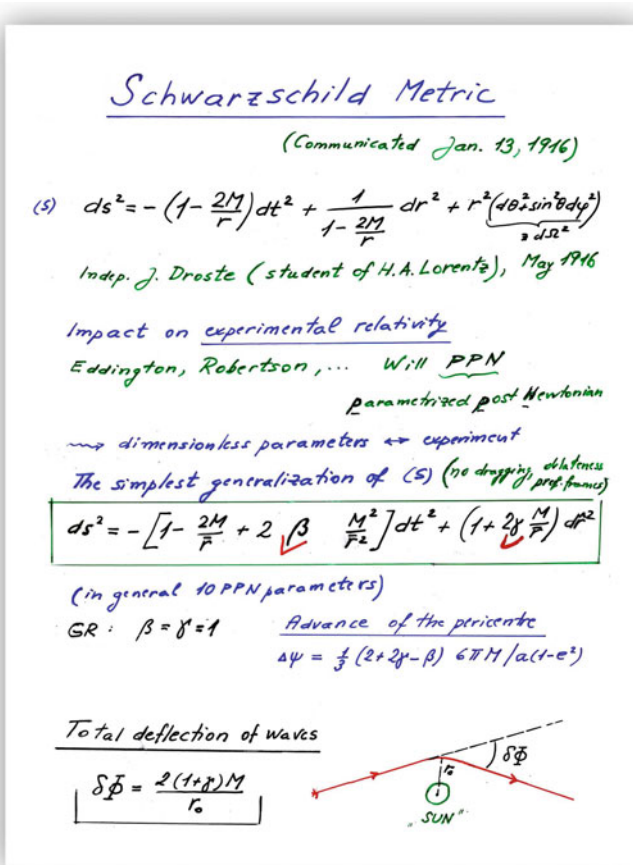 Schwarzschild Metric
(Communicated Jan. 13, 1916)
(S) ds² = - (1 - 2M/r) dt² + 1/(1 - 2M/r) dr² + r² (dθ² + sin²θ dφ²)
≡ dΩ²
Indep. J. Droste (student of H.A. Lorentz), May 1916
Impact on experimental relativity
Eddington, Robertson, ... Will PPN
parametrized post Newtonian
⇝ dimensionless parameters ↔ experiment
The simplest generalization of (S) (no dragging, oblateness
pref. frames)
ds² = - [1 - 2M/r̄ + 2 β M²/r̄²] dt² + (1 + 2γ M/r̄) dr̄²
(in general 10 PPN parameters)
GR : β = γ = 1
Advance of the pericentre
Δψ = 1/3 (2 + 2γ - β) 6πM / a(1-e²)
Total deflection of waves
δΦ = 2(1+γ)M / r₀
δΦ
r₀
"SUN"